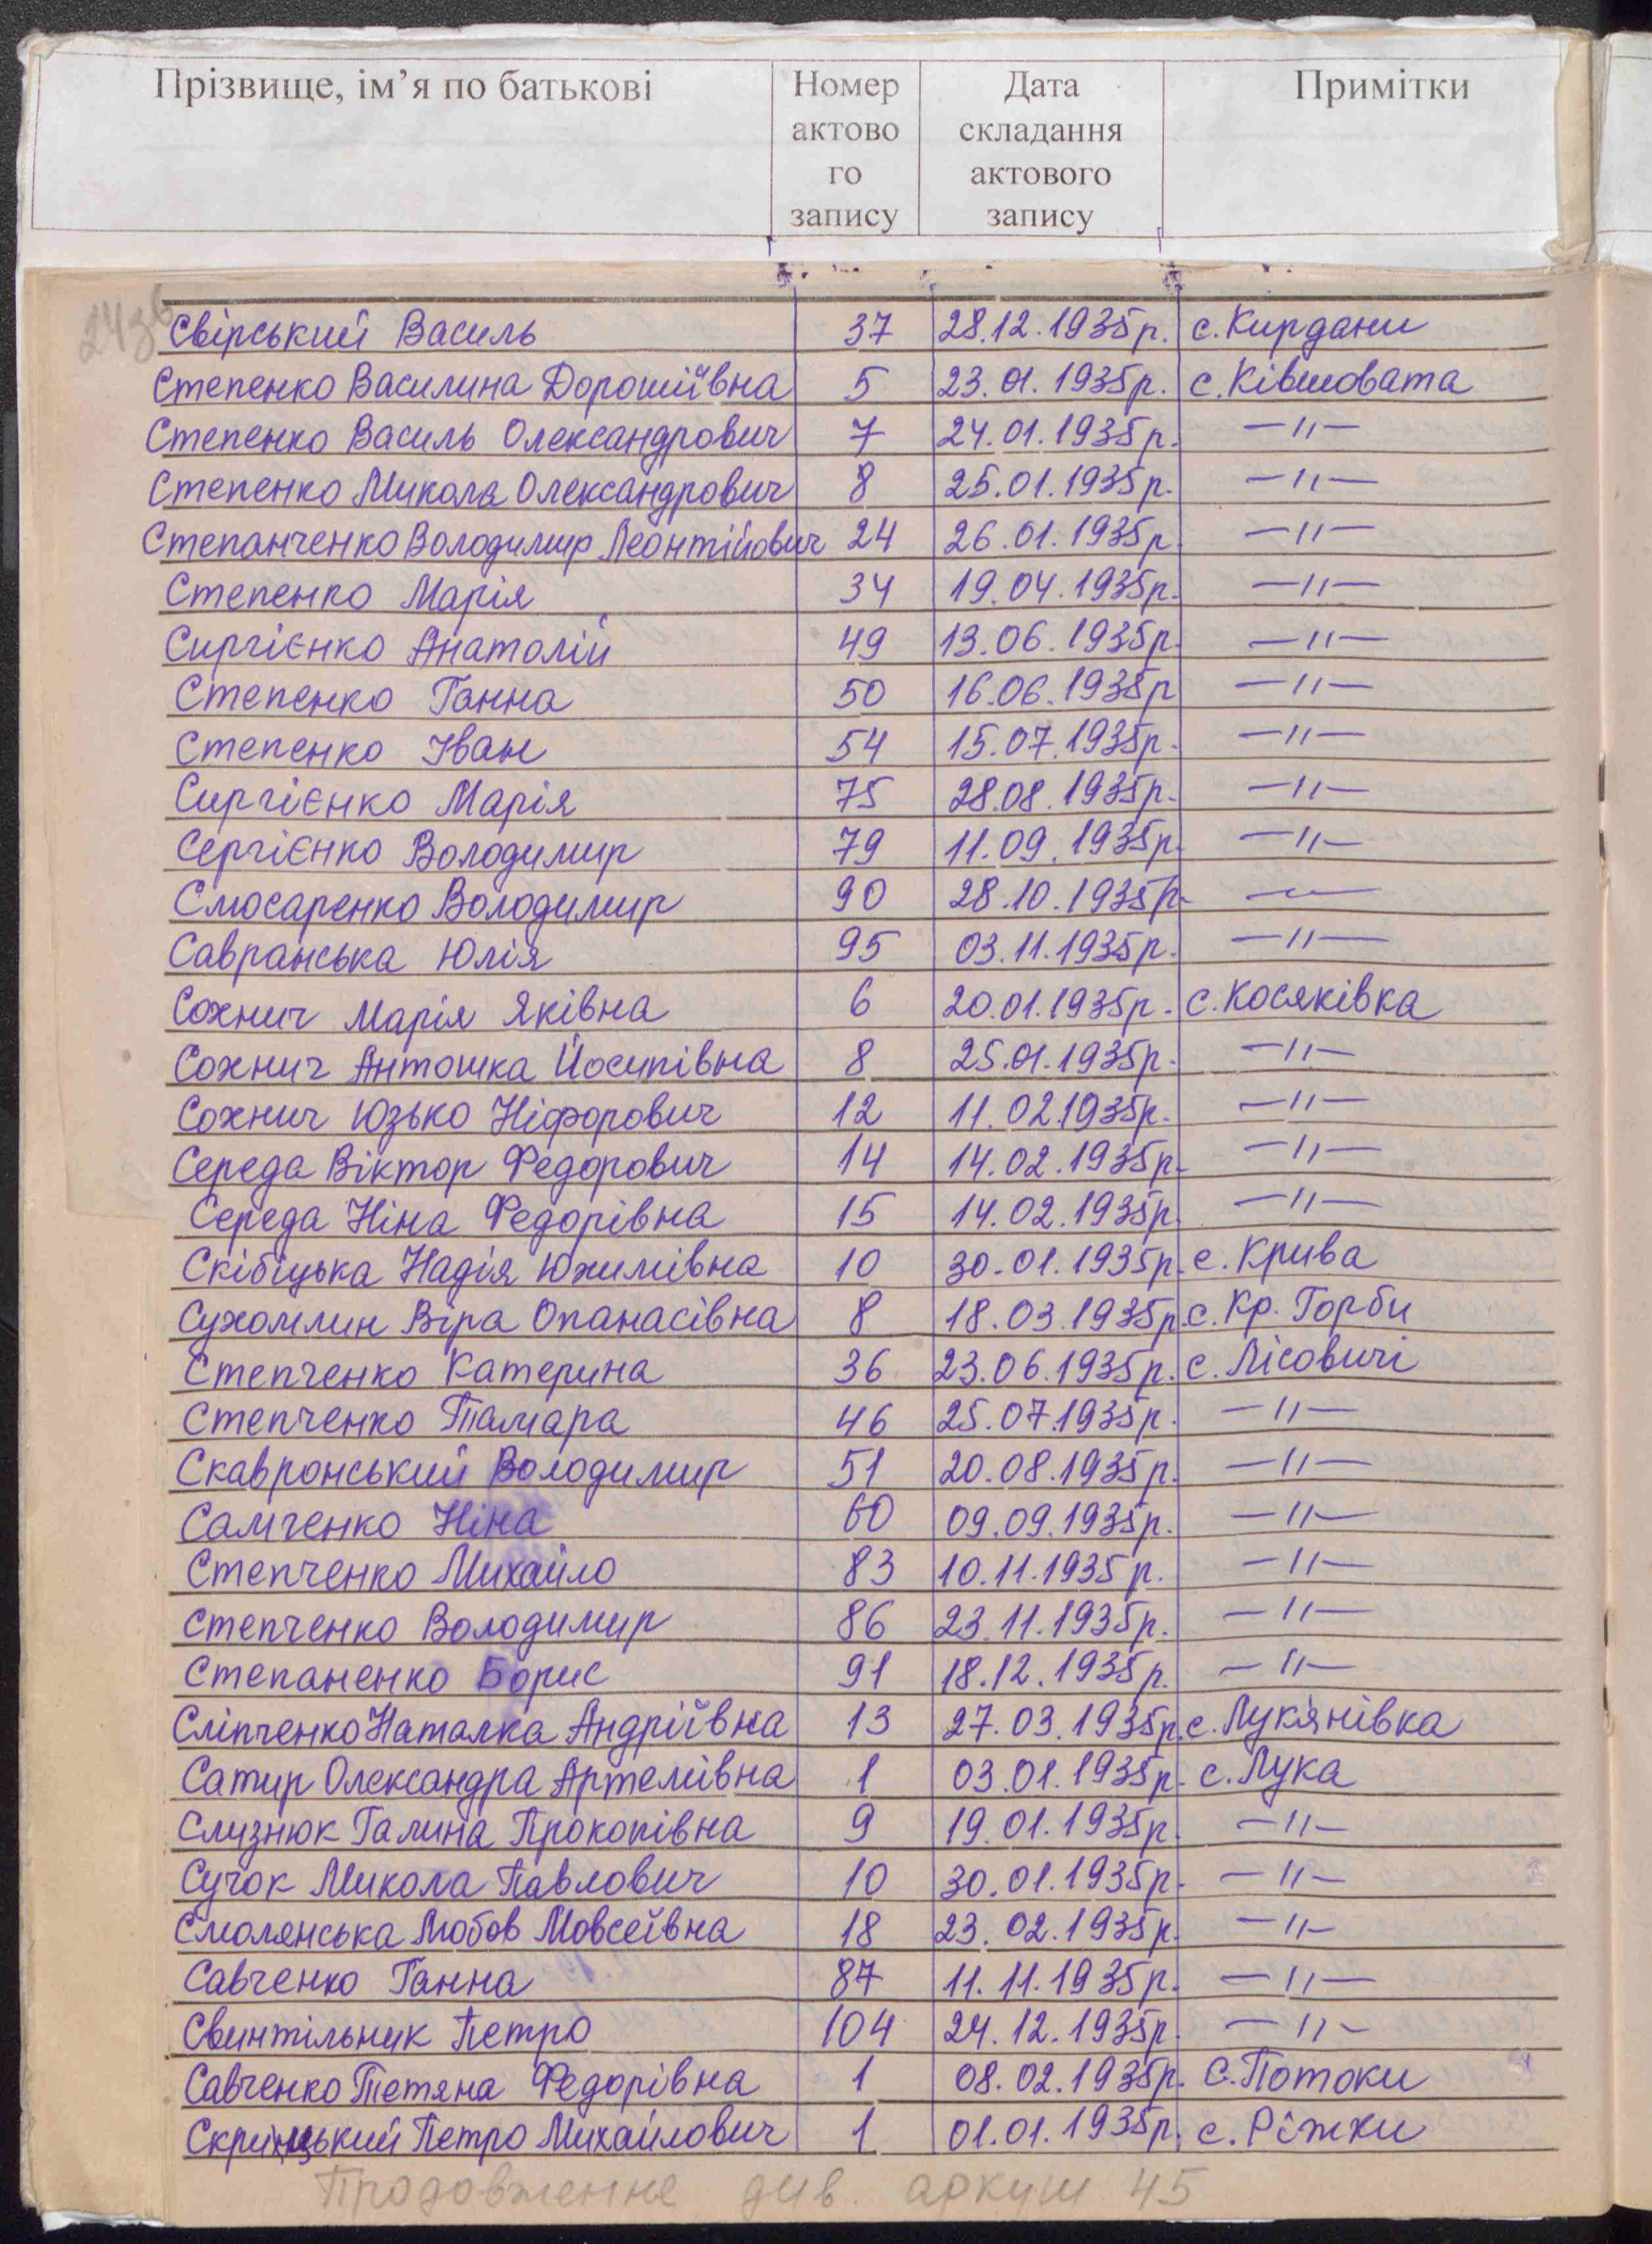 Прізвище, ім’я по батькові Номер актово го запису Дата складання актового запису Примітки
243б
Свірський Василь 37 28.12.1935р. с. Кирдани
Степенко Василина Дорошіївна 5 23.01.1935р. с. Ківшовата
Степенко Василь Олександрович 7 24.01.1935р. —//—
Степенко Микола Олександрович 8 25.01.1935р. —//—
Степанченко Володимир Леонтійович 24 26.01.1935р. —//—
Степенко Марія 34 19.04.1935р. —//—
Сиргієнко Анатолій 49 13.06.1935р. —//—
Степенко Ганна 50 16.06.1935р —//—
Степенко Іван 54 15.07.1935р. —//—
Сиргієнко Марія 75 28.08.1935р. —//—
Сергієнко Володимир 79 11.09.1935р. —//—
Слюсаренко Володимир 90 28.10.1935р. —//—
Савранська Юлія 95 03.11.1935р. —//—
Сохнич Марія Яківна 6 20.01.1935р. с. Косяківка
Сохнич Антошка Йосипівна 8 25.01.1935р. —//—
Сохнич Юзько Ніфорович 12 11.02.1935р. —//—
Середа Віктор Федорович 14 14.02.1935р. —//—
Середа Ніна Федорівна 15 14.02.1935р. —//—
Скібіцька Надія Юхимівна 10 30.01.1935р. с. Крива
Сухомлин Віра Опанасівна 8 18.03.1935р. с. Кр. Горби
Степченко Катерина 36 23.06.1935р. с. Лісовичі
Степченко Тамара 46 25.07.1935р. —//—
Скавронський Володимир 51 20.08.1935р. —//—
Самченко Ніна 60 09.09.1935р. —//—
Степченко Михайло 83 10.11.1935р. —//—
Степченко Володимир 86 23.11.1935р. —//—
Степаненко Борис 91 18.12.1935р. —//—
Сліпченко Наталка Андріївна 13 27.03.1935р. с. Лук'янівка
Сатир Олександра Артемівна 1 03.01.1935р. с. Лука
Слузнюк Галина Прокопівна 9 19.01.1935р. —//—
Сучок Микола Павлович 10 30.01.1935р. —//—
Смолянська Любов Мовсеївна 18 23.02.1935р. —//—
Савченко Ганна 87 11.11.1935р. —//—
Свинтільник Петро 104 24.12.1935р. —//—
Савченко Тетяна Федорівна 1 08.02.1935р. с. Потоки
Петро Михайлович 1 01.01.1935р. с. Ріжки
Продовження див. аркуш 45